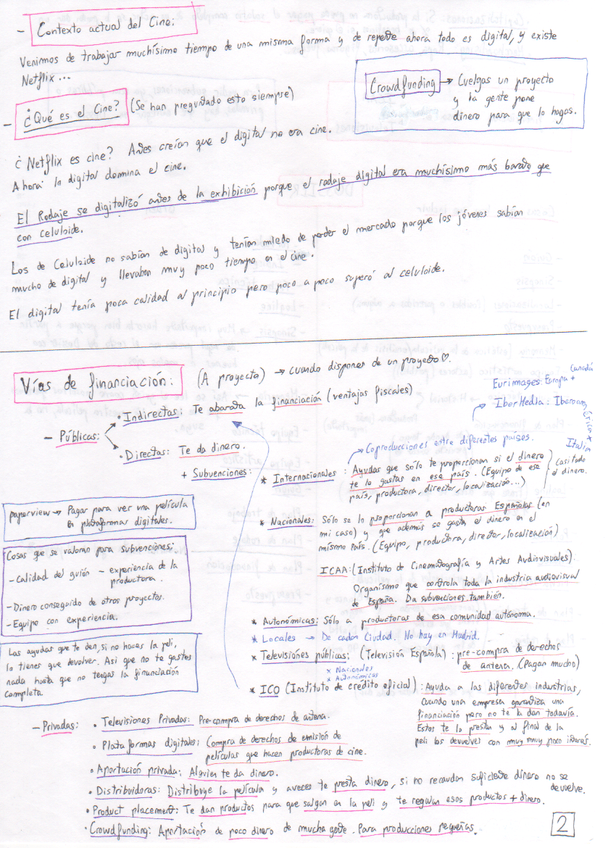 - Contexto actual del Cine:
Venimos de trabajar muchísimo tiempo de una misma forma y de repente ahora todo es digital, y existe
Netflix...
Crowdfunding → Cuelgas un proyecto
y la gente pone
dinero para que lo hagas.
- ¿Qué es el Cine? (Se han preguntado esto siempre)
¿Netflix es cine? Antes creían que el digital no era cine.
Ahora lo digital domina el cine.
El Rodaje se digitalizó antes de la exhibición porque el rodaje digital era muchísimo más barato que
con celuloide.
Los de Celuloide no sabían de digital y tenían miedo de perder el mercado porque los jóvenes sabían
mucho de digital y llevaban muy poco tiempo en el cine.
El digital tenía poca calidad al principio pero poco a poco superó al celuloide.
Vías de financiación: (A proyecto) → cuando dispones de un proyecto
- Públicas:
• Indirectas: Te abarata la financiación (ventajas fiscales)
• Directas: Te da dinero.
+ Subvenciones:
Eurimages: Europa
Coproducciones entre diferentes países.
* Internacionales: Ayudas que sólo te proporcionan si el dinero
te lo gastas en ese país. (Equipo de ese
país, productora, director, localización...)
Casi todo
el dinero.
* Nacionales: Sólo se lo proporcionan a productoras Españolas (en
mi caso) y que además se gasta el dinero en el
mismo país. (Equipo, productora, director, localización)
ICAA: (Instituto de Cinematografía y Artes Audiovisuales).
Organismo que controla toda la industria audiovisual
de España. Da subvenciones también.
* Autonómicas: Sólo a productoras de esa comunidad autónoma.
* Locales → De cada Ciudad. No hay en Madrid.
* Televisiones públicas: (Televisión Española): pre-compra de derechos
de antena. (Pagan mucho)
* Nacionales
* Autonómicas
* ICO (Instituto de crédito oficial): Ayuda a las diferentes industrias,
Cuando una empresa garantiza una
financiación pero no te la dan todavía.
Estos te lo presta y al final de la
peli los devuelves con muy muy poco
Payperview → Pagar para ver una película
en plataformas digitales.
Cosas que se valoran para subvenciones:
- Calidad del guión - experiencia de la
productora.
- Dinero conseguido de otros proyectos.
- Equipo con experiencia.
Las ayudas que te dan, si no haces la peli,
lo tienes que devolver. Así que no te gastes
nada hasta que no tengas la financiación
completa.
- Privadas: • Televisiones Privadas: Pre-compra de derechos de antena.
• Plataformas digitales: Compra de derechos de emisión de
películas que hacen productoras de cine.
• Aportación privada: Alguien te da dinero.
• Distribuidoras: Distribuye la película y a veces te presta dinero, si no recaudan suficiente dinero no se
devuelve.
• Product placement: Te dan productos para que salgan en la peli y te regalan esos productos + dinero.
• Crowdfunding: Aportación de poco dinero de mucha gente. Para producciones pequeñas.
2